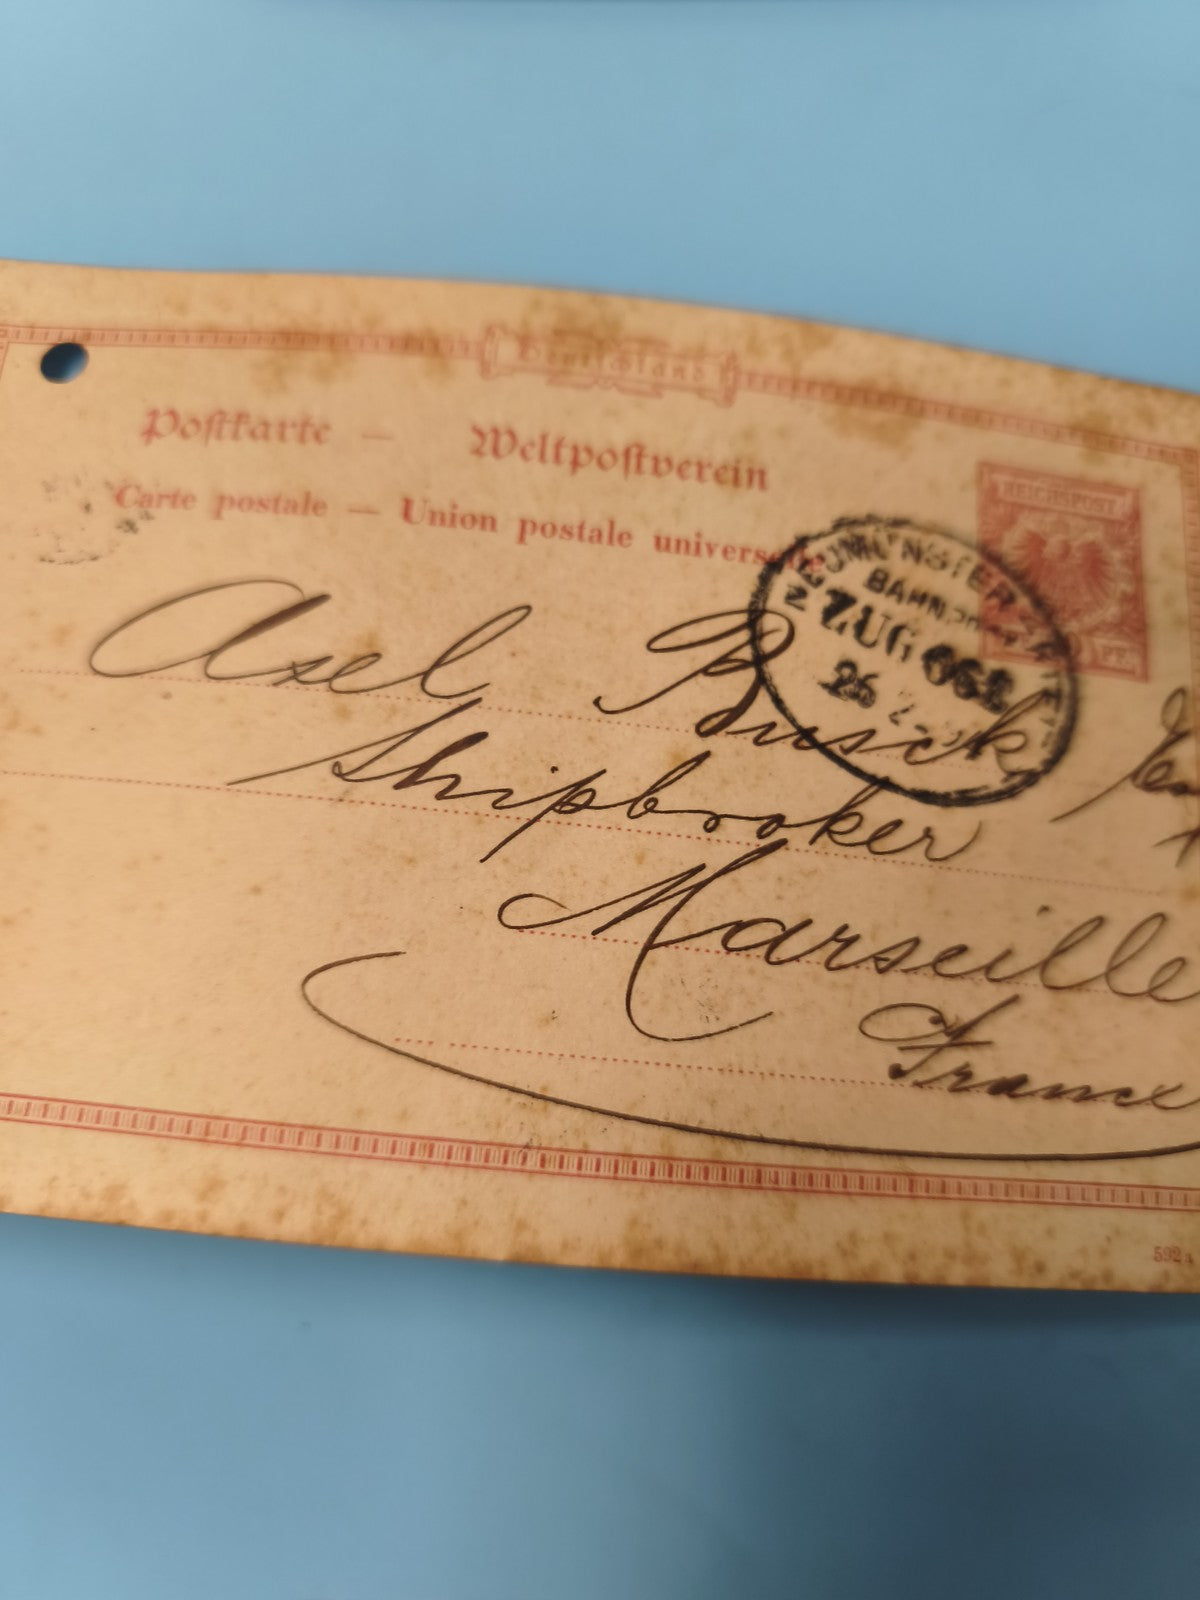 Deutschland
Postkarte — Weltpostverein
Carte postale — Union postale universelle
REICHSPOST
PF.
NEUMÜNSTER
BAHNPOST
ZUG
26
Axel Busck
Shipbroker
Marseille
France
592